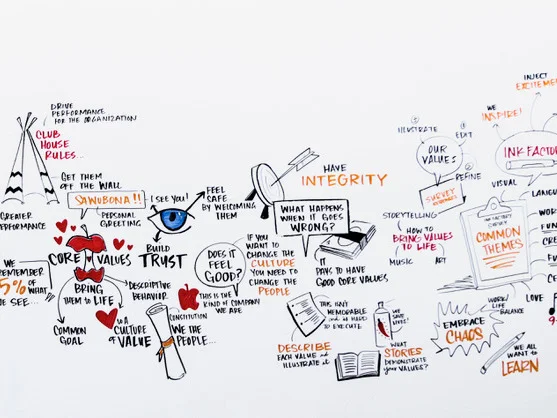 DRIVE
PERFORMANCE
FOR THE ORGANIZATION
CLUB
HOUSE
RULES...
GET THEM
OFF THE WALL
SAWUBONA!!
PERSONAL
GREETING
I SEE YOU!
FEEL
SAFE
BY WELCOMING
THEM
BUILD
TRUST
GREATER
PERFORMANCE
CORE VALUES
BRING
THEM TO LIFE
WE
REMEMBER
5% OF
WHAT
WE SEE...
COMMON
GOAL
DESCRIPTIVE
BEHAVIOR
TO A
CULTURE
OF
VALUE
CONSTITUTION
WE THE
PEOPLE...
DOES IT
FEEL
GOOD?
THIS IS THE
KIND OF COMPANY
WE ARE
IF YOU
WANT TO
CHANGE THE
CULTURE
YOU NEED TO
CHANGE THE
PEOPLE
HAVE
INTEGRITY
WHAT HAPPENS
WHEN IT GOES
WRONG?
IT
PAYS TO HAVE
GOOD CORE VALUES
THIS ISN'T
MEMORABLE
HARD
TO EXECUTE
DESCRIBE
EACH VALUE &
ILLUSTRATE IT
WE
SAVE
LIVES!
WHAT
STORIES
DEMONSTRATE
YOUR VALUES?
ILLUSTRATE
EDIT
REFINE
OUR
VALUES
SURVEY
STORYTELLING
HOW TO
BRING VALUES
TO LIFE
MUSIC
ART
INJECT
EXCITEME
WE
INSPIRE!
INK FACTOR
VISUAL
LANGUA
COMMON
THEMES
WOR
FUN
CRE
FU
CE
LOVE
WORK/
LIFE
BALANCE
EMBRACE
CHAOS
WE ALL
WANT TO
LEARN